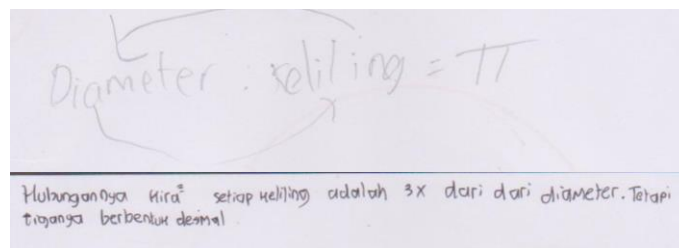 Diameter : keliling = π
Hubungannya kira² setiap keliling adalah 3x dari dari diameter. Tetapi
tiganya berbentuk desimal